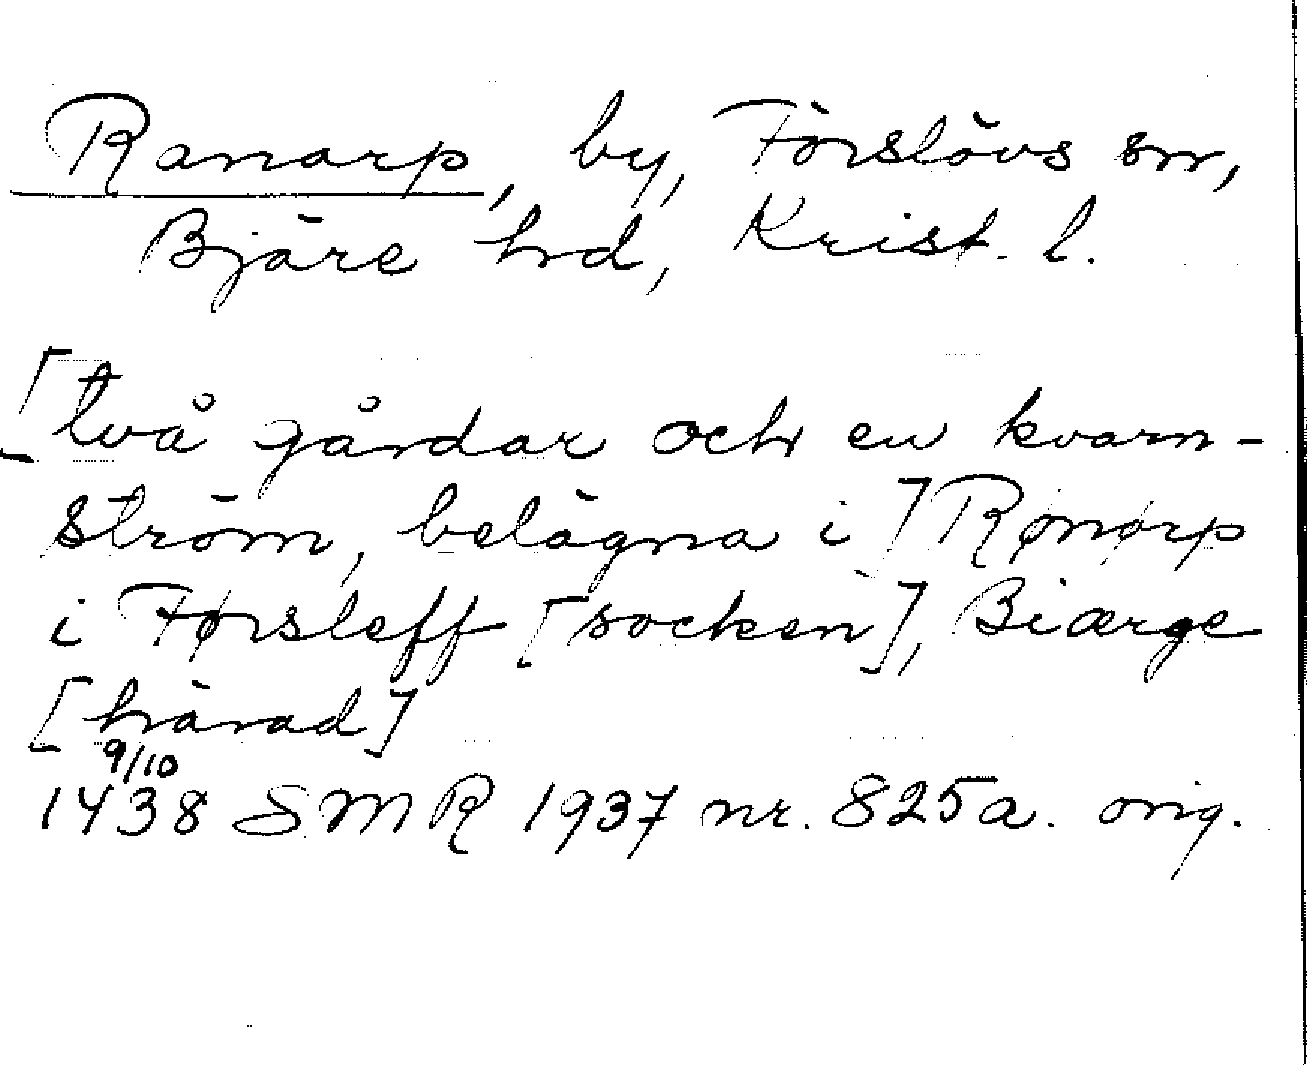 Ranarp, by, Förslövs sn,
Bjäre hd, Krist. l.
[två gårdar och en kvarn-
ström, belägna i] Rønørp
i Førsleff [socken], Biærge
[härad]
9/10
1438 SMR 1937 nr. 825a. orig.